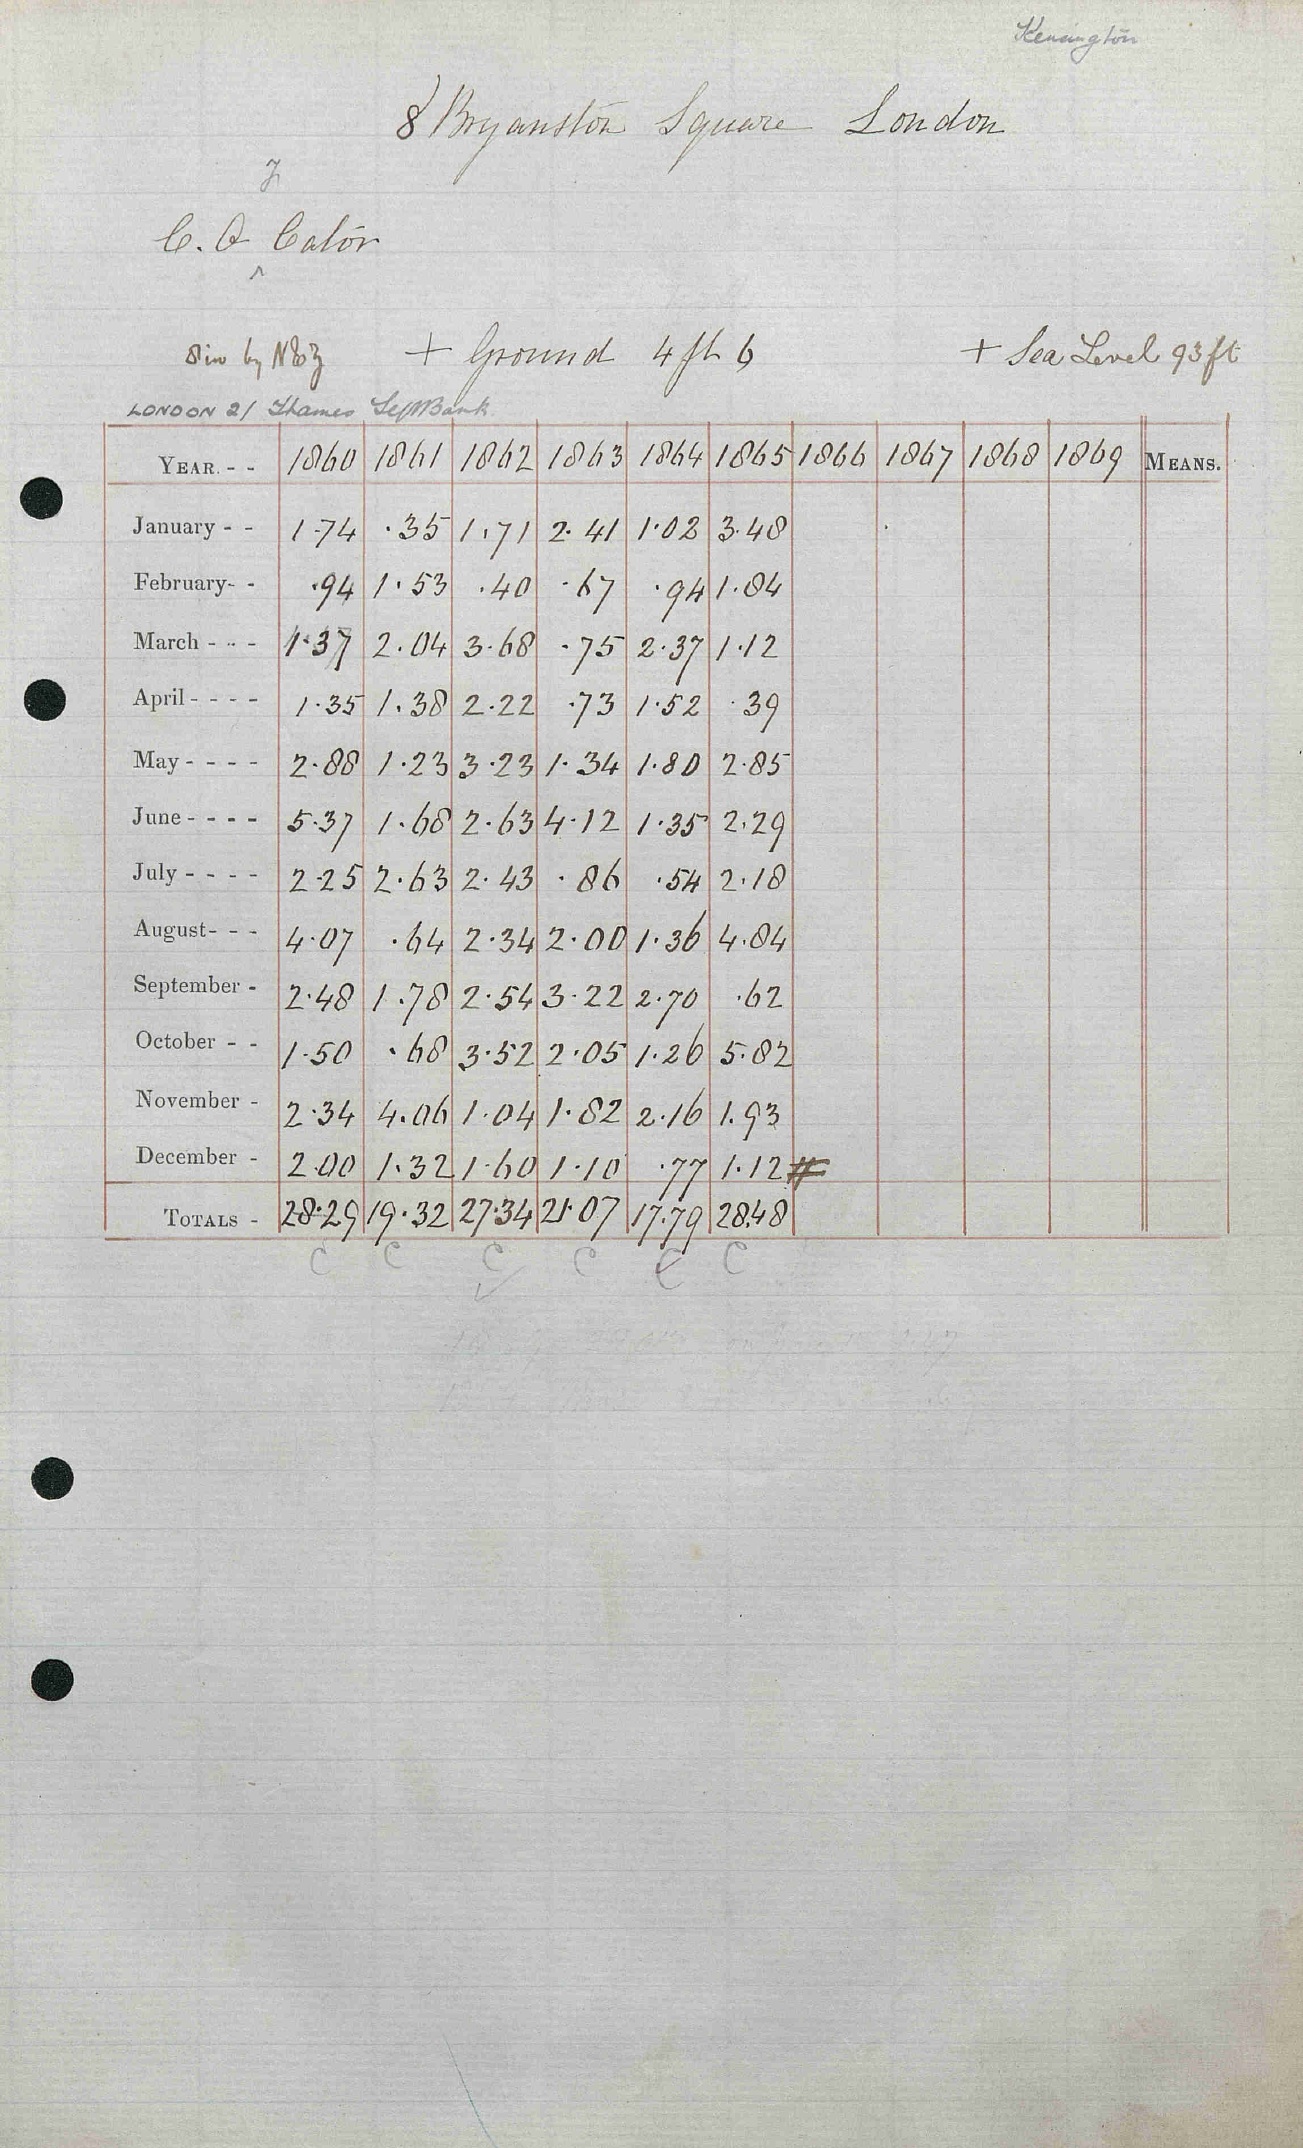 Kensington
8 Bryanston Square London
F
C. O Cator
^
8 in by N & Z + Ground 4 ft 6 + Sea Level 93 ft
LONDON 2/ Thames Left Bank
YEAR. - - 1860 1861 1862 1863 1864 1865 1866 1867 1868 1869 MEANS.
January - - 1.74 .35 1.71 2.41 1.02 3.48
February- - .94 1.53 .40 .67 .94 1.84
March - - - 1.37 2.04 3.68 .75 2.37 1.12
April - - - - 1.35 1.38 2.22 .73 1.52 .39
May - - - - 2.88 1.23 3.23 1.34 1.80 2.85
June - - - - 5.37 1.68 2.63 4.12 1.35 2.29
July - - - - 2.25 2.63 2.43 .86 .54 2.18
August- - - 4.07 .64 2.34 2.00 1.36 4.84
September - 2.48 1.78 2.54 3.22 2.70 .62
October - - 1.50 .68 3.52 2.05 1.26 5.82
November - 2.34 4.06 1.04 1.82 2.16 1.93
December - 2.00 1.32 1.60 1.10 .77 1.12 #
TOTALS - 28.29 19.32 27.34 21.07 17.79 28.48
C C C C C C